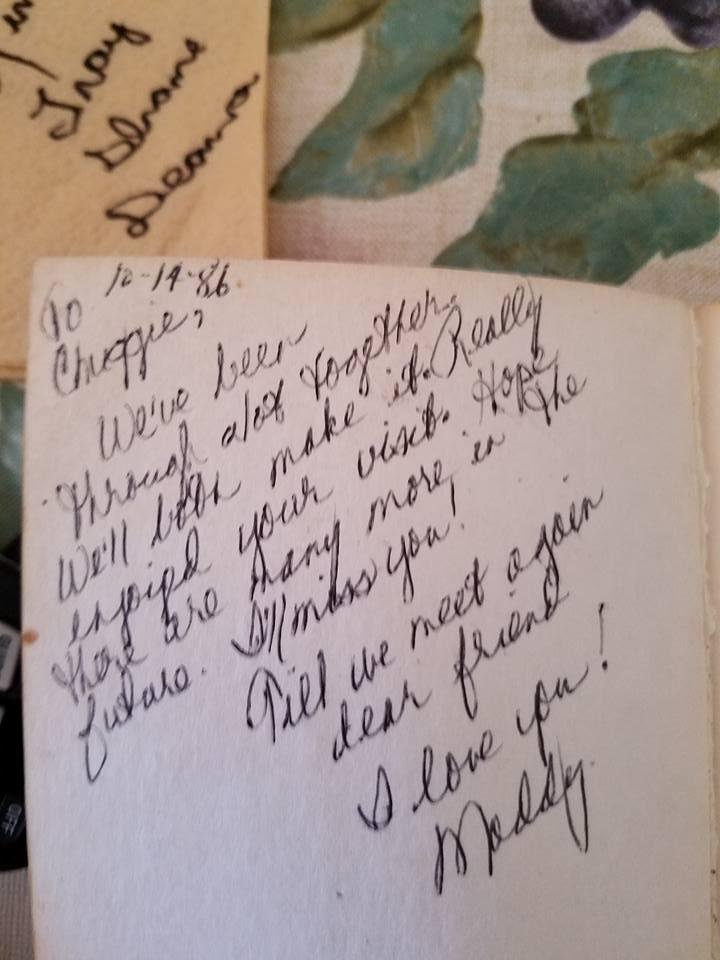 in
Tray
Shane
Deanna
10-14-86
To
Chuppie,
We've been
through alot together.
We'll both make it. Really
enjoied your visit. Hope
there are many more in the
future. I'll miss you!
Till we meet again
dear friend
I love you!
Maddy
OFF